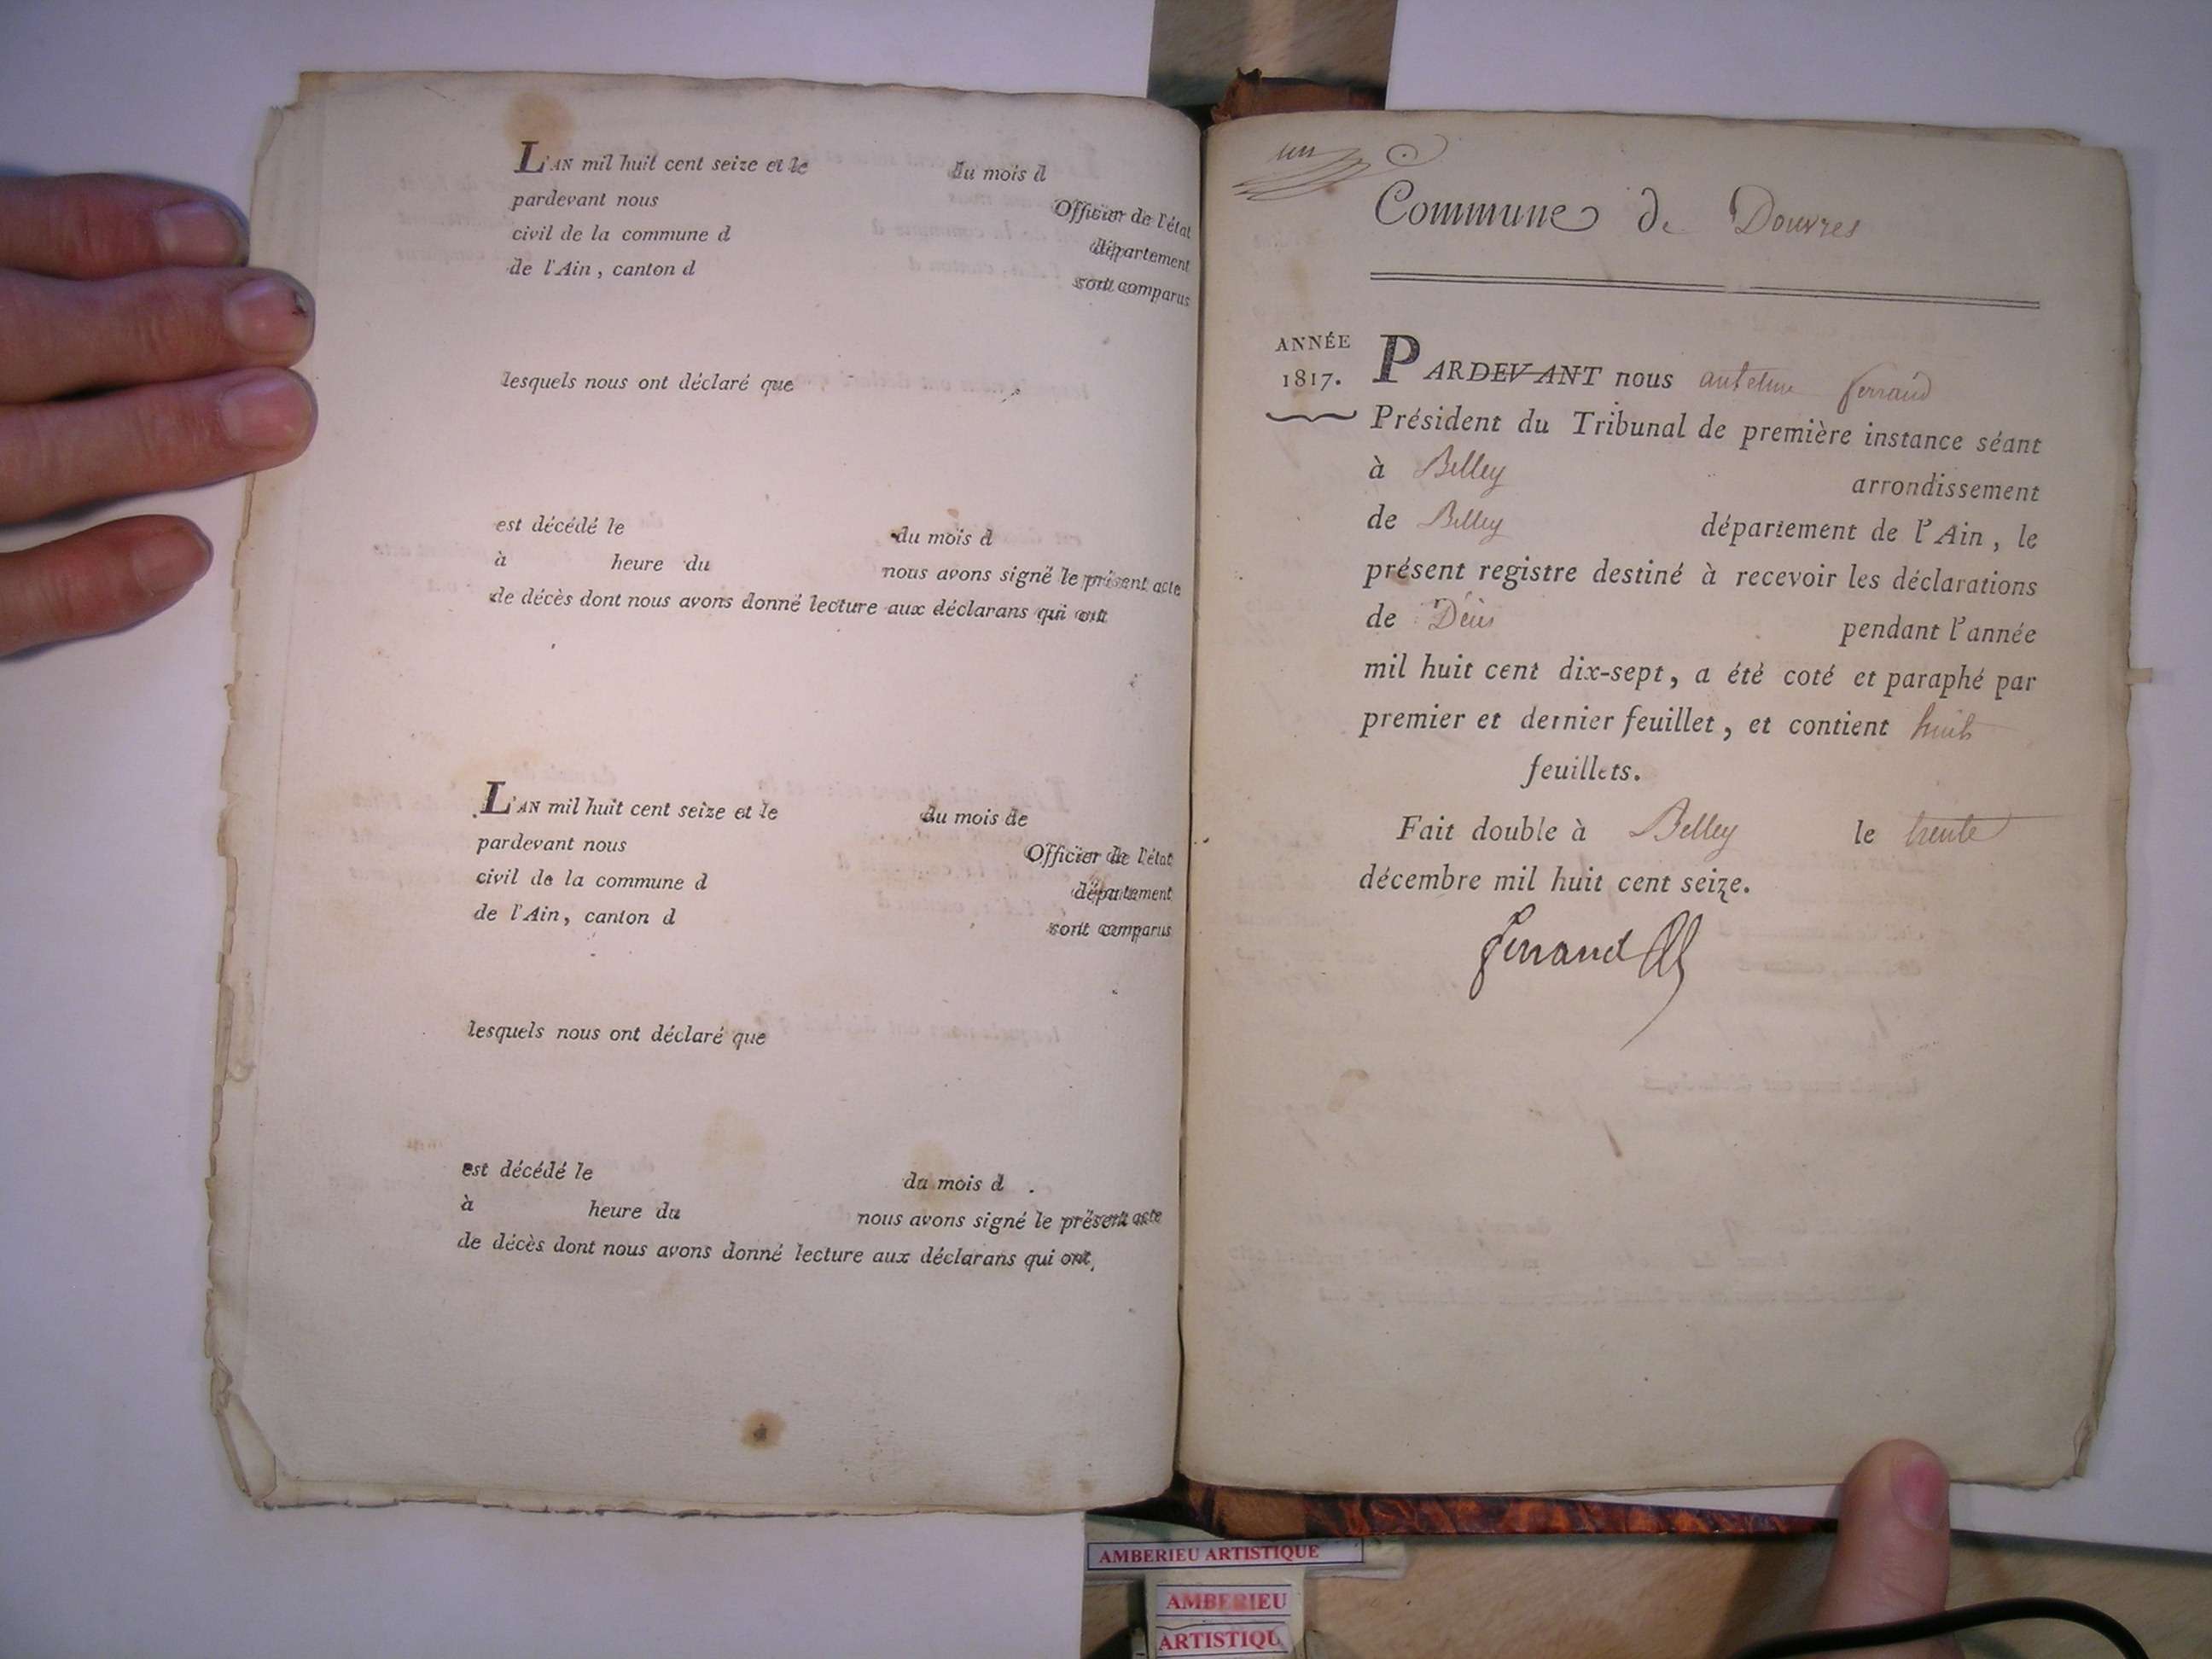 L'AN mil huit cent seize et le du mois d
pardevant nous Officier de l'état
civil de la commune d département
de l'Ain, canton d sont comparus
lesquels nous ont déclaré que
est décédé le du mois d
à heure du nous avons signé le présent acte
de décès dont nous avons donné lecture aux déclarans qui ont
L'AN mil huit cent seize et le du mois de
pardevant nous Officier de l'état
civil de la commune d département
de l'Ain, canton d sont comparus
lesquels nous ont déclaré que
est décédé le du mois d
à heure du nous avons signé le présent acte
de décès dont nous avons donné lecture aux déclarans qui ont,
un
Commune de Douvres
ANNÉE
1817.
PARDEVANT nous antelme ferrand
Président du Tribunal de première instance séant
à Belley arrondissement
de Belley département de l'Ain, le
présent registre destiné à recevoir les déclarations
de Décès pendant l'année
mil huit cent dix-sept, a été coté et paraphé par
premier et dernier feuillet, et contient huit
feuillets.
Fait double à Belley le trente
décembre mil huit cent seize.
ferrand
AMBERIEU ARTISTIQUE
AMBERIEU
ARTISTIQU